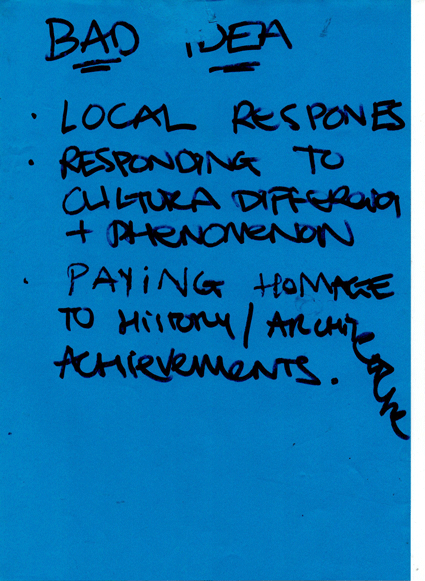 BAD IDEA
· LOCAL RESPONES
· RESPONDING TO
CULTURA DIFFERENCY
+ PHENOMENON
· PAYING HOMAGE
TO HISTORY / ARCHITECTURE
ACHIEVEMENTS.